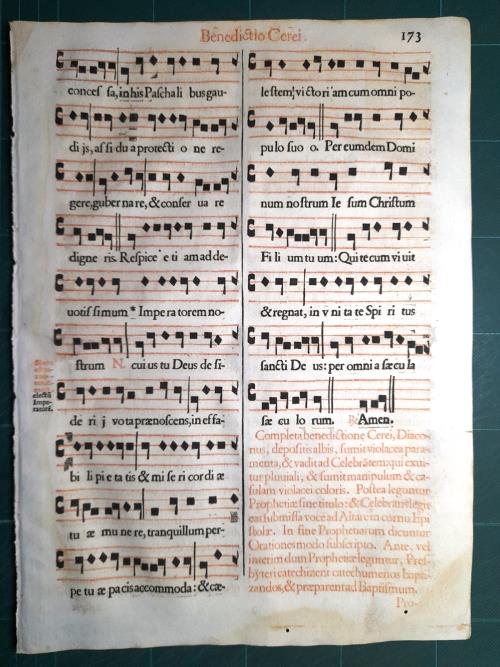 Benedictio Cerei.
173
conces sa, in his Paschali bus gau-
di js, as si du a protecti o ne re-
gere, guber na re, & conser ua re
digne ris. Respice e ti am ad de-
uotis simum * Impe ra torem no-
strum N. cui us tu Deus de si-
de ri j vota prænoscens, in ef fa-
bi li pi e ta tis & mi se ri cor di æ
tu æ mu ne re, tranquillum per-
pe tu æ pa cis accommoda: & cæ-
electū
Impe-
ratorē.
le stem vi cto ri am cum omni po-
pu lo suo o. Per eumdem Domi
num no strum Ie sum Christum
Fi li um tu um: Qui te cum vi uit
& regnat, in v ni ta te Spi ri tus
sancti De us: per omni a sæ cu la
sæ cu lo rum. Amen.
Completa benedictione Cerei, Diaco-
nus, depositis albis, sumit violacea para-
menta, & vadit ad Celebrātem: qui exui-
tur pluuiali, & sumit manipulum & ca-
sulam violacei coloris. Postea leguntur
Prophetiæ sine titulo: & Celebrans legit
eas submissa voce ad Altare in cornu Epi
stolæ. In fine Prophetiarum dicuntur
Orationes modo subscripto. Ante, vel
interim dum Prophetiæ leguntur, Pres-
byteri catechizent catechumenos bapti-
zandos, & præparent ad Baptismum.
Pro-